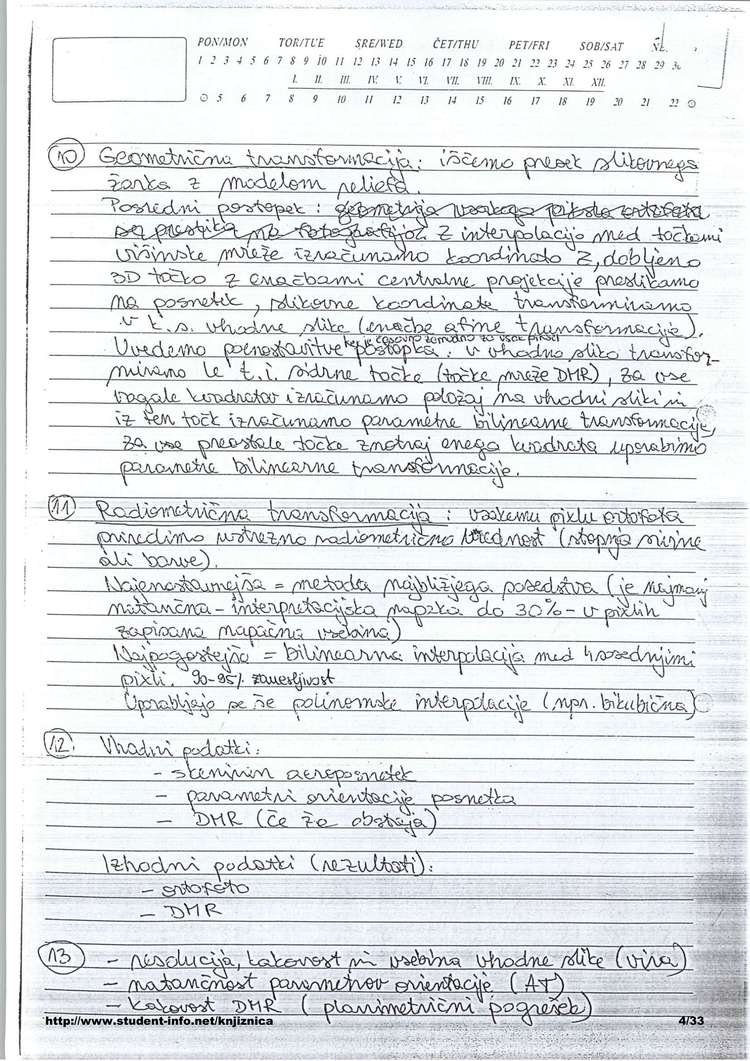 PON/MON TOR/TUE SRE/WED ČET/THU PET/FRI SOB/SAT NE.
1 2 3 4 5 6 7 8 9 10 11 12 13 14 15 16 17 18 19 20 21 22 23 24 25 26 27 28 29 30
I. II. III. IV. V. VI. VII. VIII. IX. X. XI. XII.
5 6 7 8 9 10 11 12 13 14 15 16 17 18 19 20 21 22
10 Geometrična transformacija: iščemo presek slikovnega
žarka z modelom reliefa.
Posredni postopek: geometrija vsakega piksla ortofota
se preslika na fotografijo. Z interpolacijo med točkami
višinske mreže izračunamo koordinato Z, dobljeno
3D točko z enačbami centralne projekcije preslikamo
na posnetek, slikovne koordinate transformiramo
v k.s. vhodne slike (enačbe afine transformacije).
ker je časovno zamudno za vsak piksel
Uvedemo poenostavitve postopka: v vhodno sliko transfor-
miramo le t.i. sidrne točke (točke mreže DMR), za vse
vogale kvadratov izračunamo položaj na vhodni sliki in
iz teh točk izračunamo parametre bilinearne transformacije,
za vse preostale točke znotraj enega kvadrata uporabimo
parametre bilinearne transformacije.
11 Radiometrična transformacija: vsakemu pixlu ortofota
priredimo ustrezno radiometrično vrednost (stopnja sivine
ali barve).
Najenostavnejša = metoda najbližjega sosedstva (je najmanj
natančna - interpretacijska napaka do 30% - v pixlih
zapisana napačna vsebina)
Najpogostejša = bilinearna interpolacija med 4 sosednjimi
pixli. 90-95% zanesljivost
Uporabljajo se še polinomske interpolacije (npr. bikubična)
12. Vhodni podatki:
- skeniran aeroposnetek
- parametri orientacije posnetka
- DMR (če že obstaja)
Izhodni podatki (rezultati):
- ortofoto
- DMR
13 - resolucija, kakovost in vsebina vhodne slike (vira)
- natančnost parametrov orientacije (AT)
- kakovost DMR (planimetrični pogrešek)
http://www.student-info.net/knjiznica 4/33